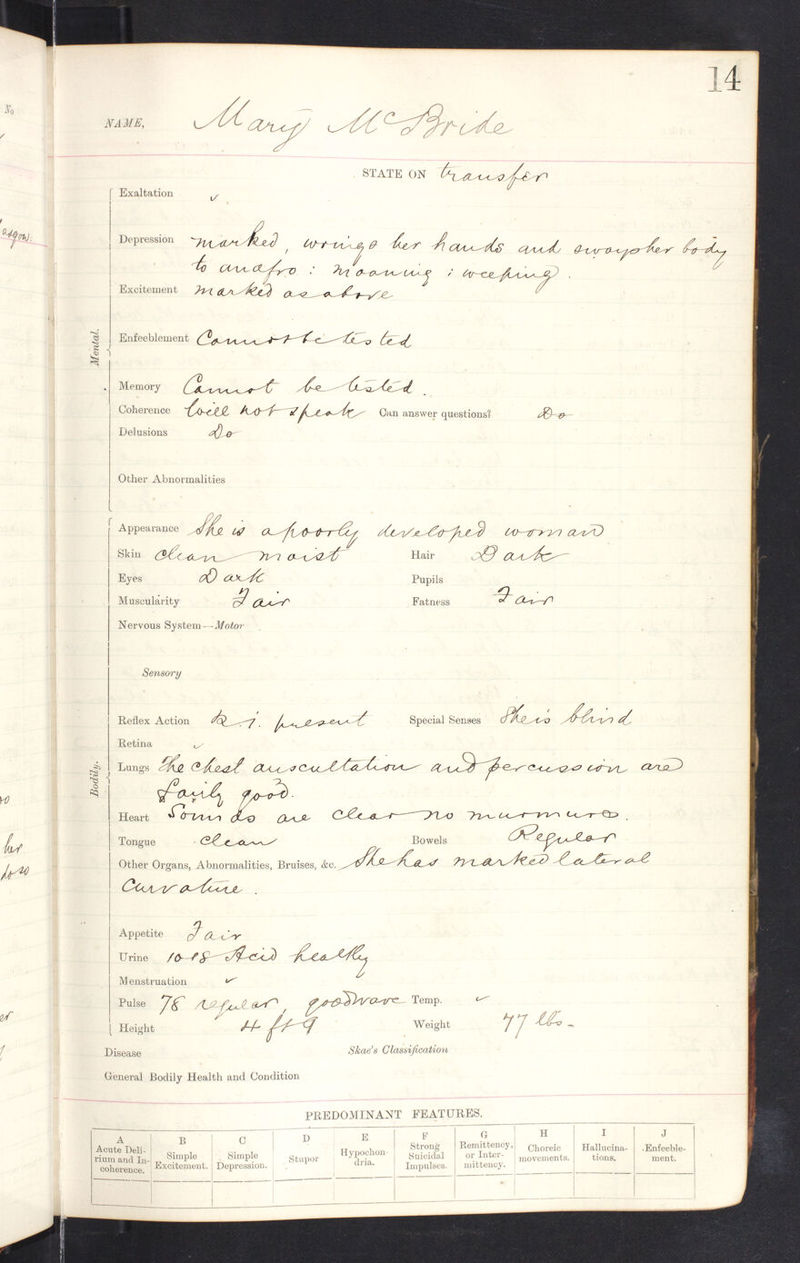 14
NAME, Mary McBride
STATE ON transfer
Exaltation ✓
Depression marked, wrings her hands and sways her body
to and fro : moaning : weeping.
Excitement marked as above
Enfeeblement Cannot be tested
Mental.
Memory Cannot be tested.
Coherence Will not speak Can answer questions? Do
Delusions Do
Other Abnormalities
Appearance She is a poorly developed woman
Skin clean moist Hair Dark
Eyes Dark Pupils
Muscularity Fair Fatness Fair
Nervous System—Motor
Sensory
Reflex Action K.j. present Special Senses She is blind
Retina ✓
Bodily.
Lungs The chest auscultation and percussion are
fairly good.
Heart Sounds are clear no murmurs.
Tongue clean Bowels Regular
Other Organs, Abnormalities, Bruises, &c. She has marked lateral
Curvature.
Appetite Fair
Urine 1018 Acid healthy
Menstruation ✓
Pulse 78 regular, good wave Temp. ✓
Height 4 ft 9 Weight 77 lbs-
Disease Skae's Classification
General Bodily Health and Condition
PREDOMINANT FEATURES.
A B C D E F G H I J
Acute Deli-
rium and In-
coherence.
Simple
Excitement.
Simple
Depression.
Stupor
Hypochon-
dria.
Strong
Suicidal
Impulses.
Remittency,
or Inter-
mittency.
Choreic
movements.
Hallucina-
tions.
Enfeeble-
ment.
No
her